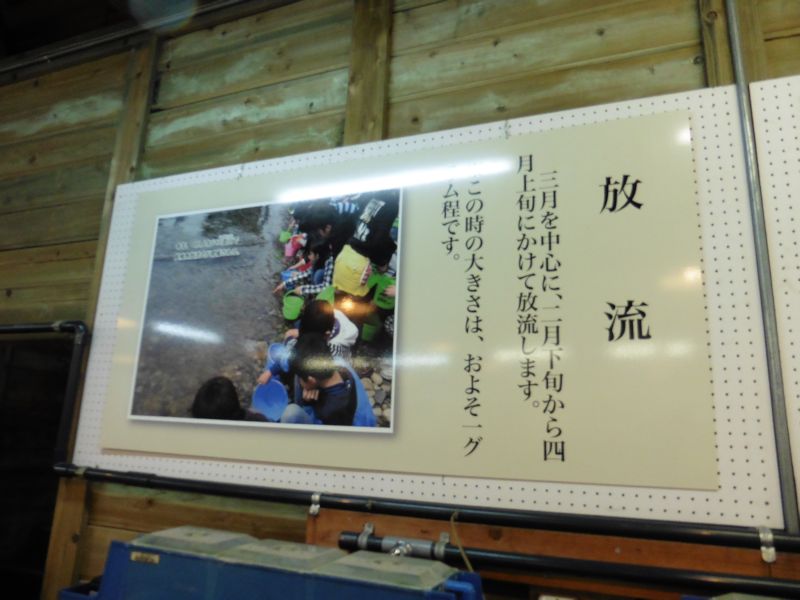 放流
三月を中心に、二月下旬から四
月上旬にかけて放流します。
この時の大きさは、およそ一グ
ム程です。